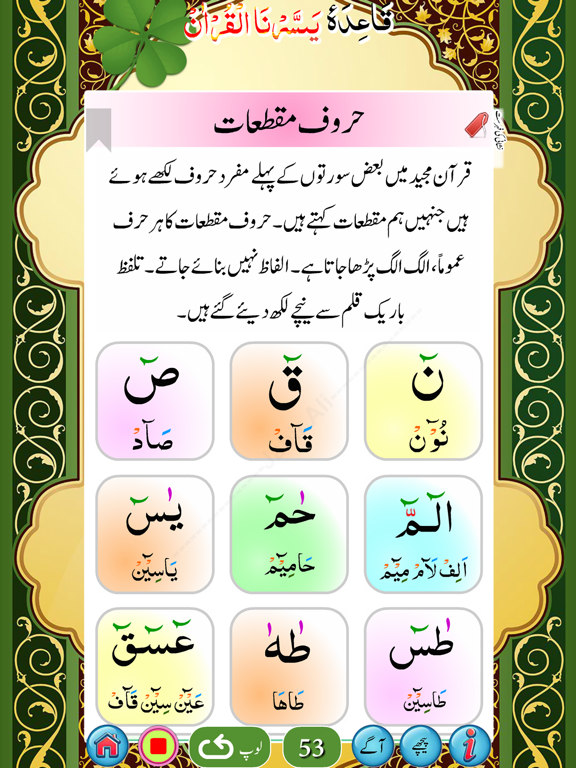 قَاعِدَهٗ يَسَّرْنَا الْقُرْاٰن
حروف مقطعات
قرآن مجید میں بعض سورتوں کے پہلے مفرد حروف لکھے ہوئے
ہیں جنہیں ہم مقطعات کہتے ہیں۔ حروف مقطعات کا ہر حرف
عموماً، الگ الگ پڑھا جاتا ہے۔ الفاظ نہیں بنائے جاتے۔ تلفظ
باریک قلم سے نیچے لکھ دیئے گئے ہیں۔
نٓ قٓ صٓ
نُوْٓنْ قَآفْ صَآدْ
الٓمّٓ حٰمٓ يٰسٓ
اَلِفْ لَآمْ مِيْٓمْ حَامِيْٓمْ يَاسِيْٓنْ
طٰسٓ طٰهٰ عٓسٓقٓ
طَاسِيْٓنْ طَاهَا عَيْٓنْ سِيْٓنْ قَآفْ
پیچھے آگے 53 لوپ